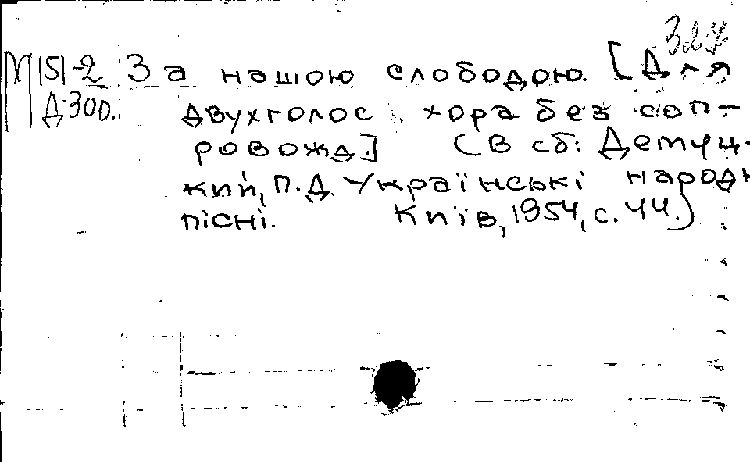 М151-2 За нашою слободою. [Для
Д.300. двухголос хора без соп-
ровожд.] (В сб: Демуц-
кий, П.Д. Українські народн
пісні. Київ, 1954, с. 44.)